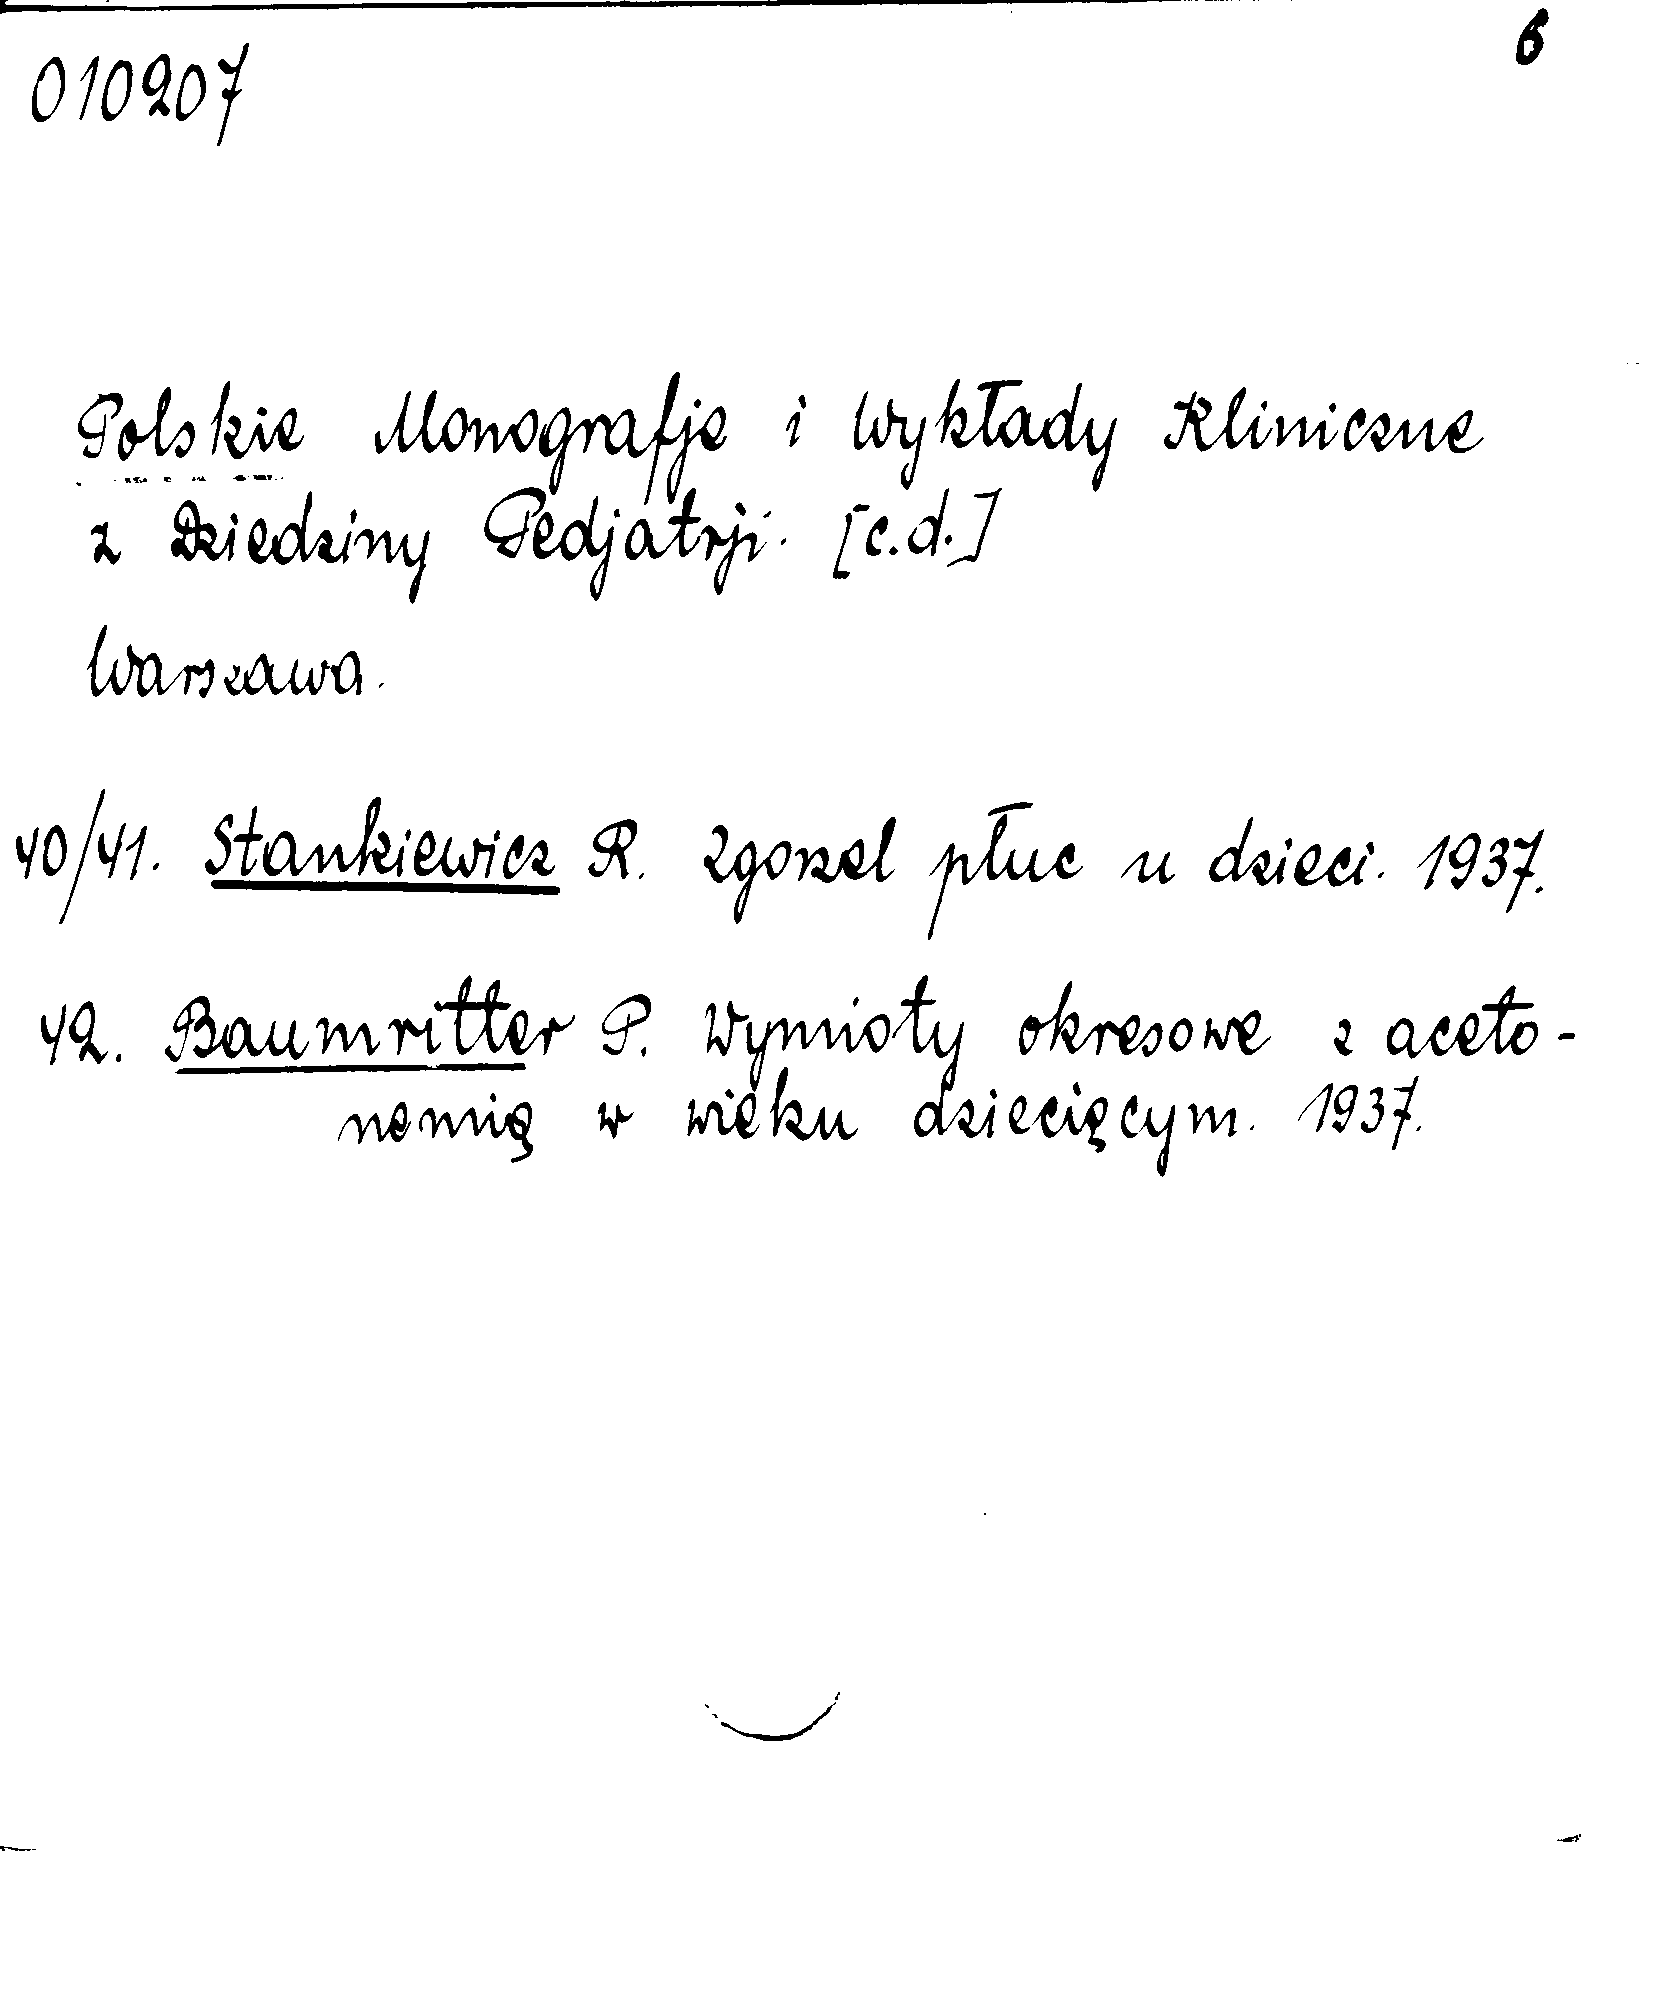 6
010207
Polskie Monografje i Wykłady Kliniczne
z Dziedziny Pedjatrji. [c.d.]
Warszawa.
40/41. Stankiewicz R. Zgorzel płuc u dzieci. 1937.
42. Baumritter P. Wymioty okresowe z aceto-
nemią w wieku dziecięcym. 1937.